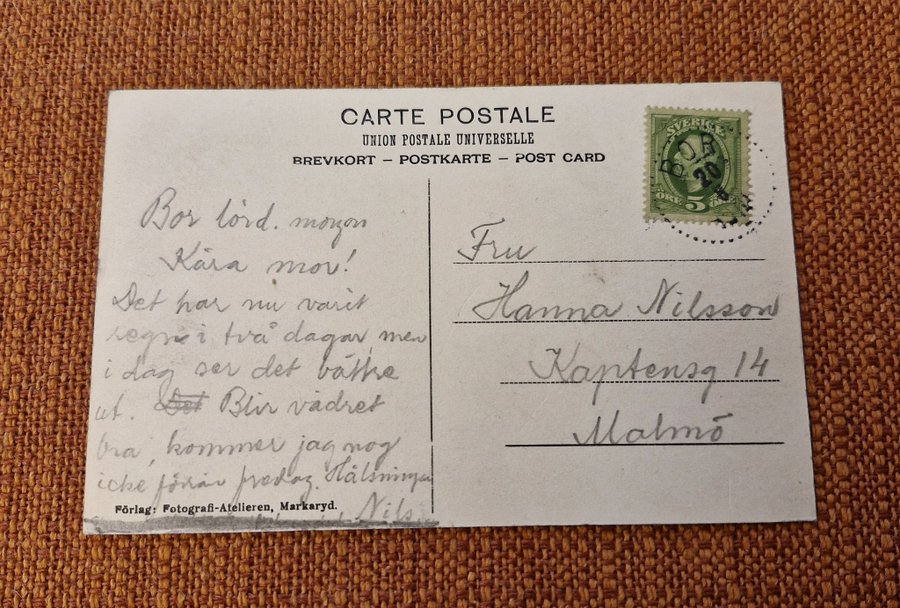 CARTE POSTALE
UNION POSTALE UNIVERSELLE
BREVKORT – POSTKARTE – POST CARD
SVERIGE
ÖRE 5
BOR
20
Bor lörd. morgon
Kära mor!
Det har nu varit
regn i två dagar men
i dag ser det bättre
ut. Det Blir vädret
bra, kommer jag nog
icke förrän fredag. Hälsningar
Nils
Förlag: Fotografi-Atelieren, Markaryd.
Fru
Hanna Nilsson
Kaptensg 14
Malmö